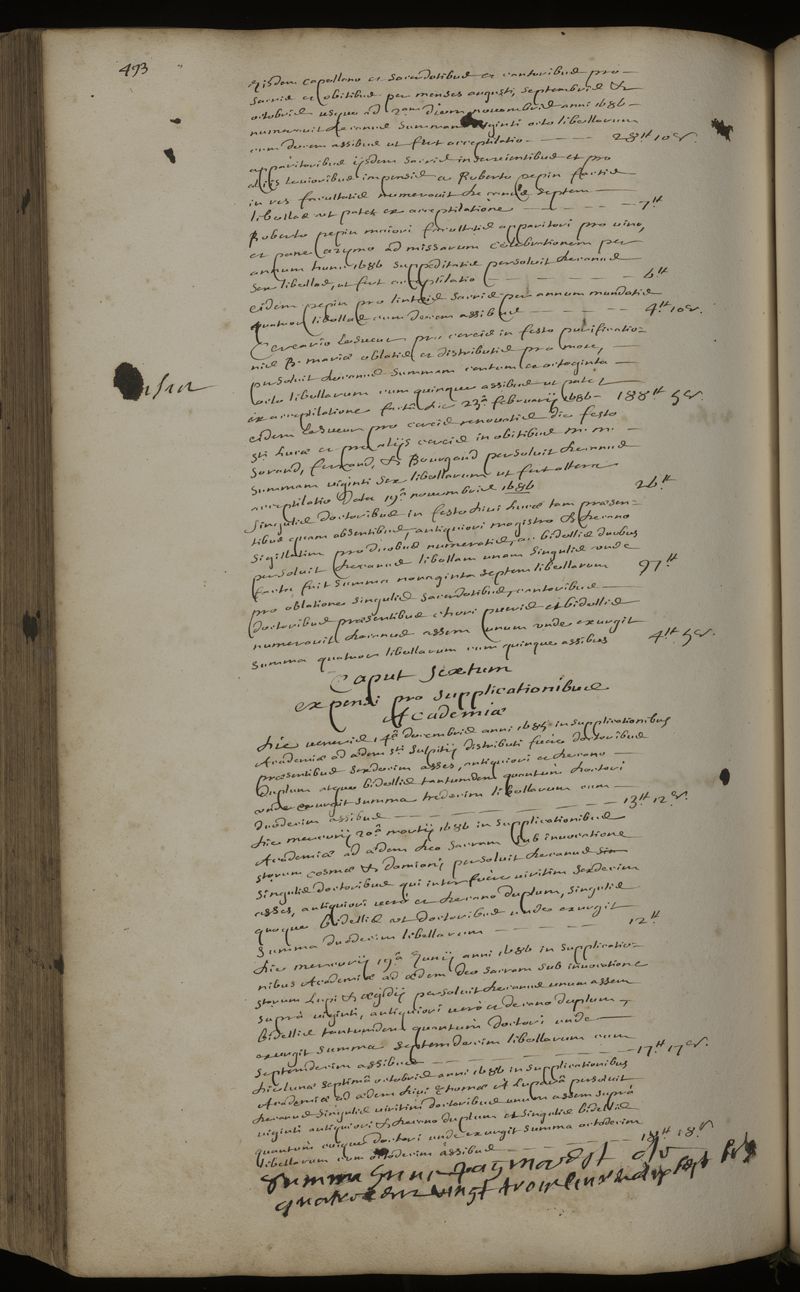 493
Eisdem capellano et sacerdotibus et cantoribus pro
sacris et obitibus per menses augusti, septembris et
octobris usque ad 2am diem novembris anni 1686
numeravit decanus summam viginti octo libellarum
cum decem assibus ut fert acceptilatio — 28tt 10s.
apparitoribus ijsdem sacris inservientibus et pro
alijs levioribus impensis a Roberto pepin factis
in res facultatis numeravit decanus septem
libellas ut patet ex acceptilatione — 7tt
Roberto pepin maiori facultatis apparitori pro vino,
et pane azymo ad missarum celebrationem per
annum hunc 1686 suppeditatis persolvit decanus
sex libellas, ut fert acceptilatio — 6tt
eidem pepin pro linteis sacris per annum mundatis
quatuor libellas cum decem assibus — 4tt 10s.
Cereario Lesueur pro cereis in festo purificatio=
nis B. mariæ oblatis et distributis pro more,
persolvit decanus summam centum et octoginta
octo libellarum cum quinque assibus ut patet
ex acceptilatione facta die 23a februarij 1686 — 188tt 5s.
eidem Lesueur pro cereis renovatis die festo
sti Lucæ et pro alijs cereis in obitibus m. m.
, ferrand, et Bourgaud persolvit decanus
summam viginti sex libellarum ut fert altera
acceptilatio data 19a novembris 1686 26tt
singulis doctoribus in festo divi Lucæ tam præsen=
tibus quam absentibus, antiquiori magistro et decano
sigillatim pro duobus numeratis, ac bidellis duobus
persolvit decanus libellam unam singulis unde
facta fuit summa nonaginta septem libellarum 97tt
pro oblatione singulis sacerdotibus, cantoribus
doctoribus præsentibus chori pueris et bidellis
numeravit decanus assem unum unde exurgit
summa quatuor libellarum cum quinque assibus 4tt 5s.
Caput Sextum
expensi pro supplicationibus
Academiæ
die veneris 14a decembris anni 1685 in supplicationibus
Academiæ ad ædem sti Sulpitij distributi fuere doctoribus
præsentibus sexdecim asses, antiquiori et decano
duplum atque bidellis tantumdem quantum doctori
unde exurgit summa tredecim libellarum cum
duodecim assibus — 13tt 12s.
die mercurij 20a martij 1686 in supplicationibus
Academiæ ad ædem deo sacram sub invocatione
storum cosmæ et damiani persolvit decanus
singulis doctoribus qui interfuere viritim sexdecim
asses, antiquiori vero et decano duplum, singulis
quoque bidellis ut doctoribus unde exurgit
summa duodecim libellarum — 12tt
die mercurij 19a Junij anni 1686 in supplicatio=
nibus Academiæ ad ædem deo sacram sub invocatione
storum Lupi et ægidij persolvit decanus unum assem
supra viginti, antiquiori vero et decano duplum,
bidellis tantumdem quantum doctori, unde
exurgit summa septemdecim libellarum cum
septemdecim assibus — 17tt 17s.
die lunæ septima octobris anni 1686 in supplicationibus
Academiæ ad ædem divi thomæ persolvit
decanus singulis viritim doctoribus unum assem supra
viginti antiquiori et decano duplum et singulis bidellis
quantum cuique doctori unde exurgit summa octodecim
libellarum cum octodecim assibus — 18tt 18s.
Summa
quatrecenz vingt trois livres dix sept